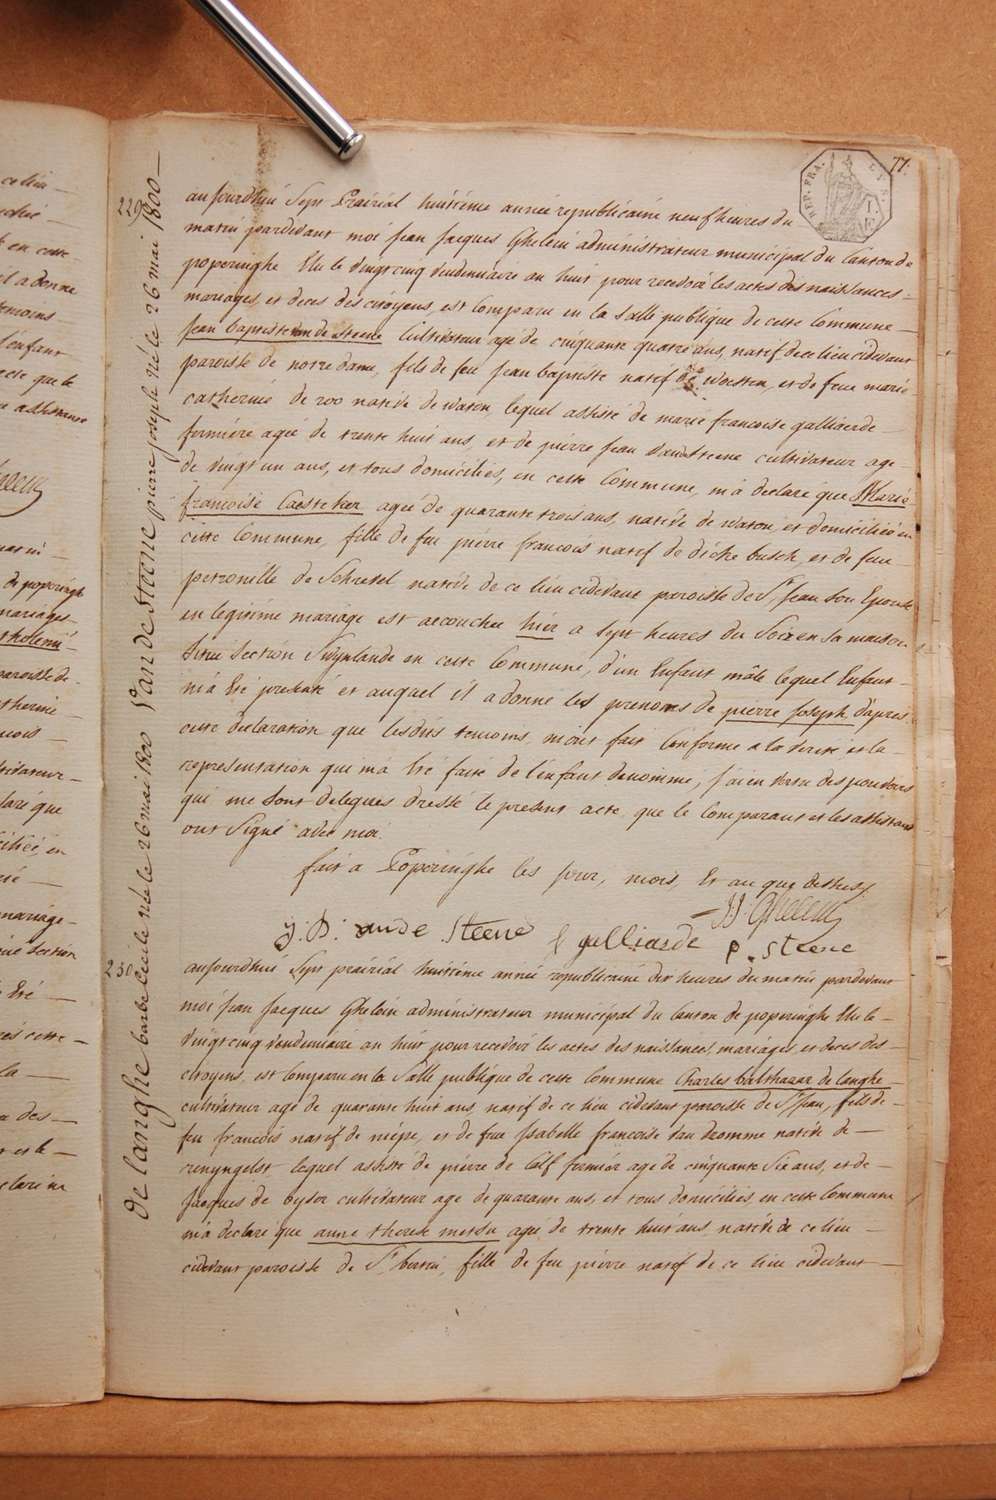 77.
REP. FRA.
229
Van de Steene pierre joseph né le 26 mai 1800
aujourdhui Sept Prairial huitième année republicaine neuf heures du
matin pardevant moi Jean Jacques Ghelein administrateur municipal du Canton de
poperinghe Elu le vingt cinq vendemiaire an huit pour recevoir les actes des naissances
mariages, et deces des citoyens, est comparu en la Salle publique de cette Commune
Jean baptiste van de Steene Cultivateur age de cinquante quatre ans, natif de ce lieu cidevant
paroisse de notre dame, fils de feu Jean baptiste natif de woesten, et de feue marie
catherine de roo native de waton, lequel assisté de marie francoise galliaerde
fermière agée de trente huit ans, et de pierre Jean vandesteene cultivateur age
de vingt un ans, et tous domiciliés, en cette Commune, m'a declaré que Marie
francoise Caesteker agée de quarante trois ans, native de waton, et domiciliée en
cette Commune, fille de feu pierre francois natif de dicke busch, et de feue
petronille de Schrevel native de ce lieu cidevant paroisse de St Jean son Epouse
en legitime mariage est accouchée hier a sept heures du Soir en sa maison
Située Section Swynlande en cette Commune, d'un Enfant mâle lequel Enfant
m'a été presenté et auquel il a donné les prenoms de pierre Joseph, d'apres
cette declaration que lesdits temoins m'ont fait Conforme a la verité et la
representation que m'a été faite de l'enfant denommé, j'ai en vertu des pouvoirs
qui me sont delegues dressé le present acte que le Comparant et les assistans
ont Signé avec moi.
fait a Poperinghe les jour, mois, et an que dessus
JJ Ghelein
J. B. vande Steene f galliaerde P. Steene
230
De langhe né le 26 mai 1800
aujourdhui Sept prairial huitième année republicaine dix heures du matin pardevant
moi Jean Jacques Ghelein administrateur municipal du Canton de poperinghe Elu le
vingt cinq vendemiaire an huit pour recevoir les actes des naissances, mariages, et deces des
citoyens, est Comparu en la Salle publique de cette commune Charles balthazar de langhe
cultivateur age de quarante huit ans, natif de ce lieu cidevant paroisse de St Jean, fils de
feu francois natif de niepe, et de feue Isabelle francoise van dromme native de
renyngelst lequel assisté de pierre de Calf fermier age de cinquante six ans, et de
Jacques de byser cultivateur age de quarante ans, et tous domiciliés, en cette Commune
m'a declaré que anne therese merdu agée de trente huit ans, native de ce lieu
cidevant paroisse de St bertin, fille de feu pierre natif de ce lieu cidevant